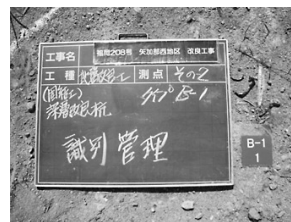 工事名 県道208号 矢加部西地区 改良工事
工種 地盤改良工 測点 その2
(固結工)
深層改良杭
タイプB-1
識別管理
B-1
1